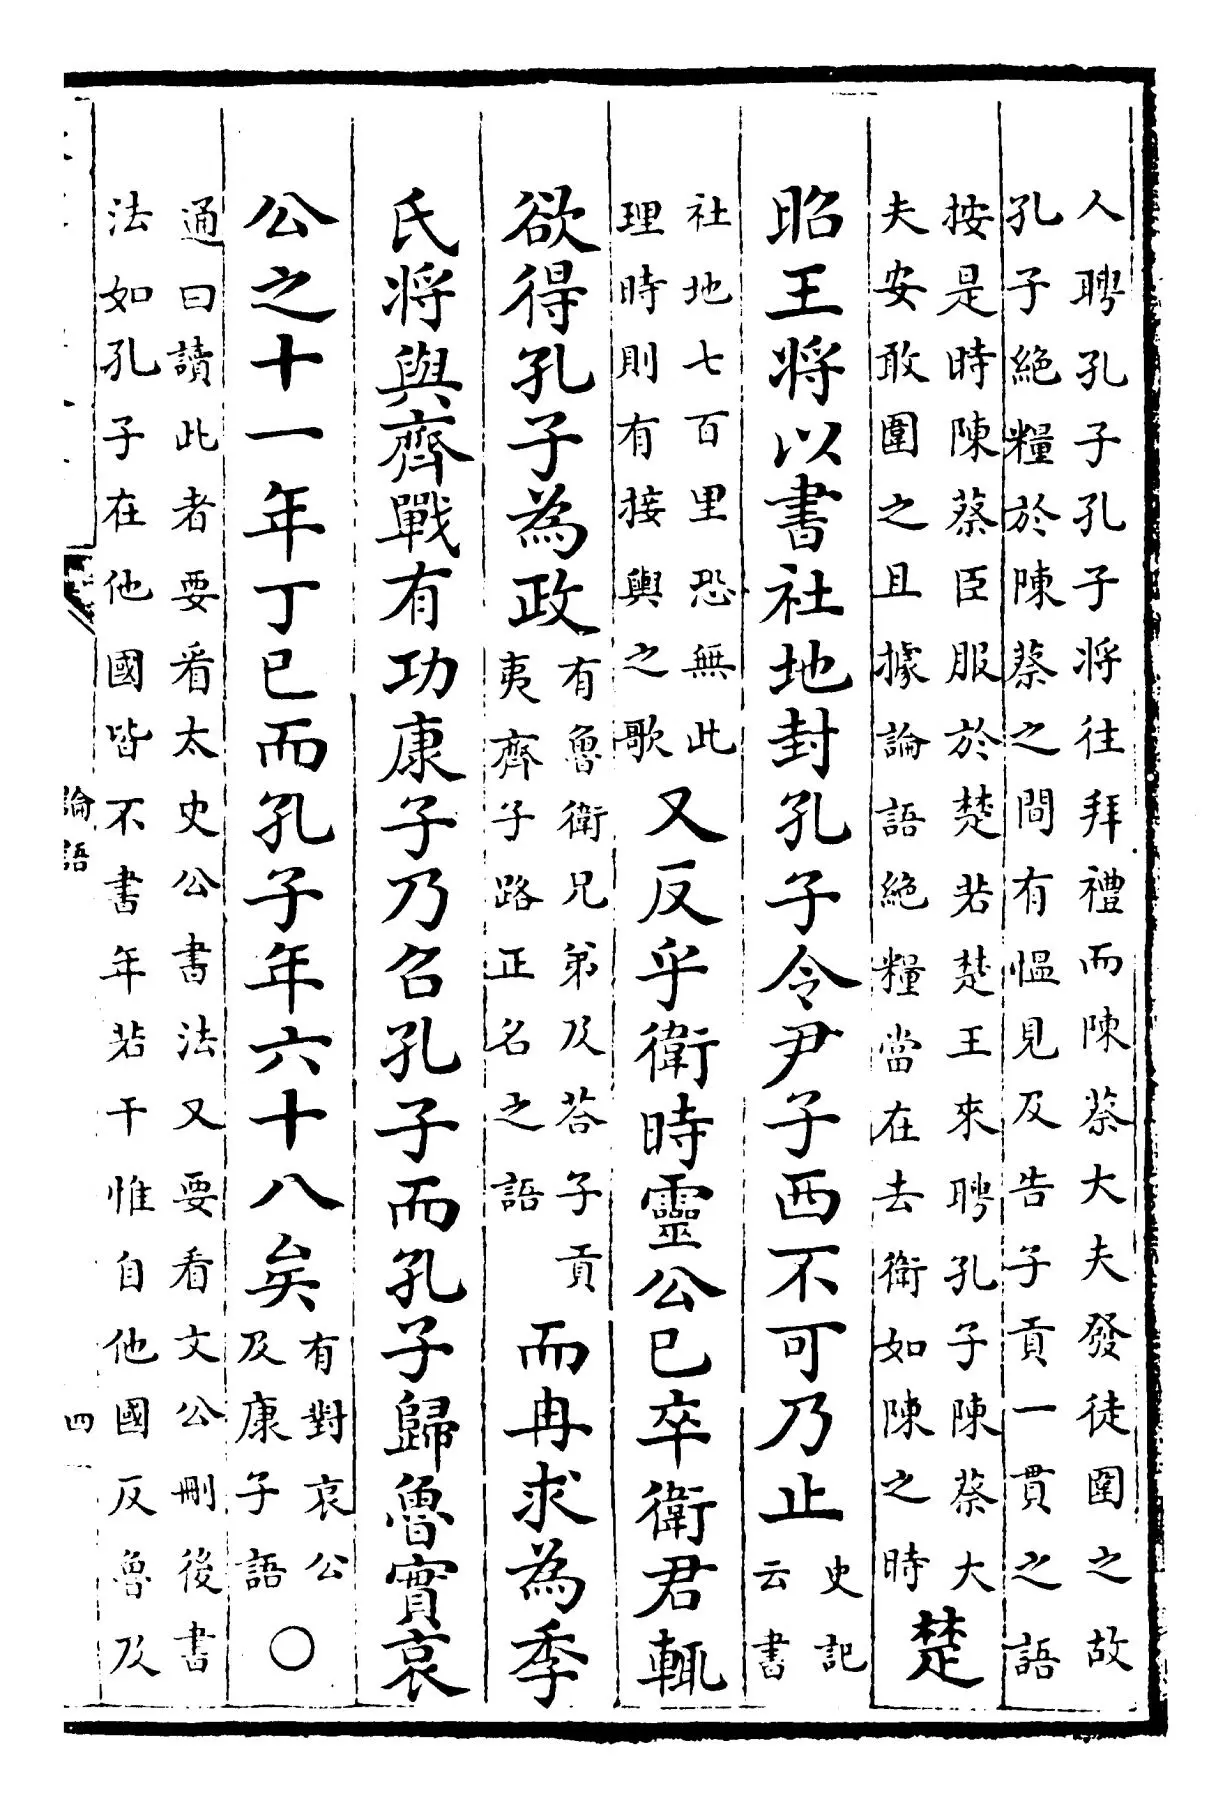 人聘孔子孔子將往拜禮而陳蔡大夫發徒圍之故
孔子絕糧於陳蔡之間有慍見及告子貢一貫之語
按是時陳蔡臣服於楚若楚王來聘孔子陳蔡大
夫安敢圍之且據論語絕糧當在去衛如陳之時
楚
昭王將以書社地封孔子令尹子西不可乃止
史記
云書
社地七百里恐無此
理時則有接輿之歌
又反乎衛時靈公已卒衛君輒
欲得孔子為政
有魯衛兄弟及荅子貢
夷齊子路正名之語
而冉求為季
氏將與齊戰有功康子乃召孔子而孔子歸魯實哀
公之十一年丁巳而孔子年六十八矣
有對哀公
及康子語
○
通曰讀此者要看太史公書法又要看文公刪後書
法如孔子在他國皆不書年若干惟自他國反魯及
論語
四